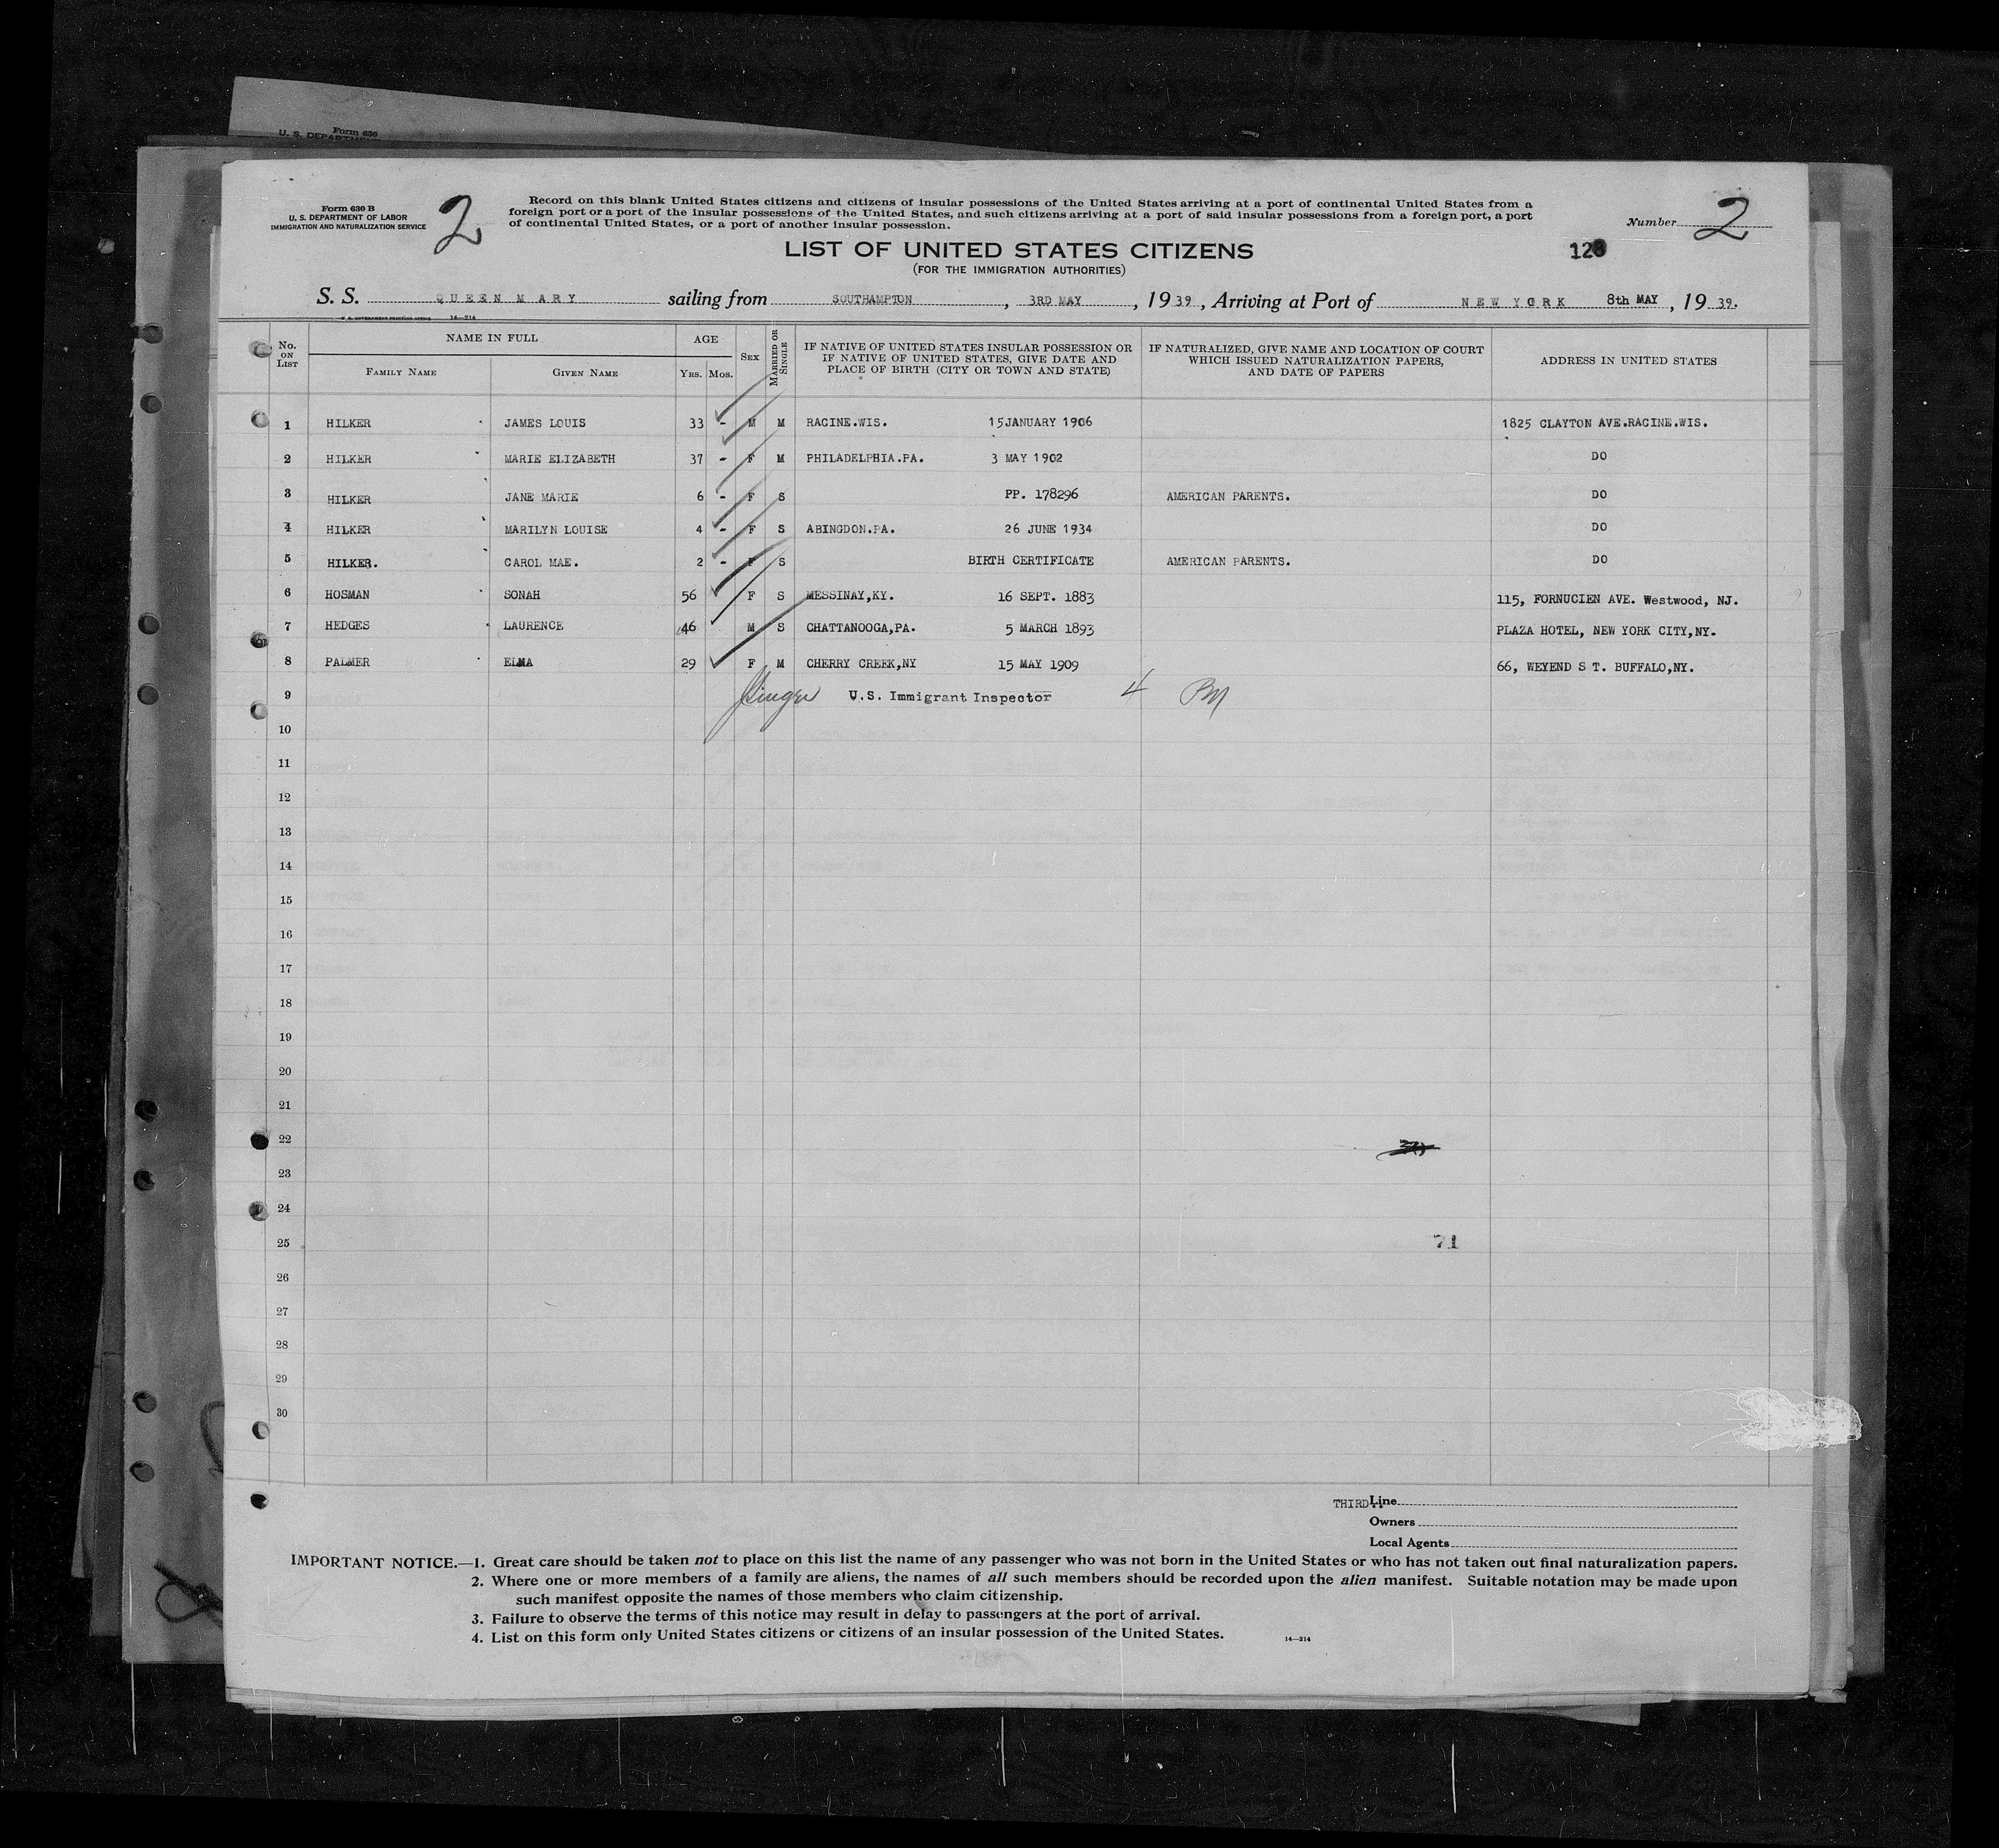 Form 630
U. S. DEPARTMENT
Form 630 B
U. S. DEPARTMENT OF LABOR
IMMIGRATION AND NATURALIZATION SERVICE
2
Record on this blank United States citizens and citizens of insular possessions of the United States arriving at a port of continental United States from a
foreign port or a port of the insular possessions of the United States, and such citizens arriving at a port of said insular possessions from a foreign port, a port
of continental United States, or a port of another insular possession.
Number 2
LIST OF UNITED STATES CITIZENS
(FOR THE IMMIGRATION AUTHORITIES)
S. S. QUEEN MARY sailing from SOUTHAMPTON, 3RD MAY, 1939, Arriving at Port of NEW YORK 8th MAY, 1939.
U. S. GOVERNMENT PRINTING OFFICE 14—214
No. ON LIST NAME IN FULL AGE SEX MARRIED OR SINGLE IF NATIVE OF UNITED STATES INSULAR POSSESSION OR IF NATIVE OF UNITED STATES, GIVE DATE AND PLACE OF BIRTH (CITY OR TOWN AND STATE) IF NATURALIZED, GIVE NAME AND LOCATION OF COURT WHICH ISSUED NATURALIZATION PAPERS, AND DATE OF PAPERS ADDRESS IN UNITED STATES
FAMILY NAME GIVEN NAME YRS. MOS.
1 HILKER JAMES LOUIS 33 - M M RACINE.WIS. 15JANUARY 1906 1825 CLAYTON AVE.RACINE.WIS.
2 HILKER MARIE ELIZABETH 37 - F M PHILADELPHIA.PA. 3 MAY 1902 DO
3 HILKER JANE MARIE 6 - F S PP. 178296 AMERICAN PARENTS. DO
4 HILKER MARILYN LOUISE 4 - F S ABINGDON.PA. 26 JUNE 1934 DO
5 HILKER. CAROL MAE. 2 - F S BIRTH CERTIFICATE AMERICAN PARENTS. DO
6 HOSMAN SONAH 56 F S MESSINAY,KY. 16 SEPT. 1883 115, FORNUCIEN AVE. Westwood, NJ.
7 HEDGES LAURENCE 46 M S CHATTANOOGA,PA. 5 MARCH 1893 PLAZA HOTEL, NEW YORK CITY,NY.
8 PALMER ELMA 29 F M CHERRY CREEK,NY 15 MAY 1909 66, WEYEND S T. BUFFALO,NY.
9 U.S. Immigrant Inspector 4
10
11
12
13
14
15
16
17
18
19
20
21
22
23
24
25 71
26
27
28
29
30
THIRD Line
Owners
Local Agents
IMPORTANT NOTICE.—1. Great care should be taken not to place on this list the name of any passenger who was not born in the United States or who has not taken out final naturalization papers.
2. Where one or more members of a family are aliens, the names of all such members should be recorded upon the alien manifest. Suitable notation may be made upon
such manifest opposite the names of those members who claim citizenship.
3. Failure to observe the terms of this notice may result in delay to passengers at the port of arrival.
4. List on this form only United States citizens or citizens of an insular possession of the United States.
14—214